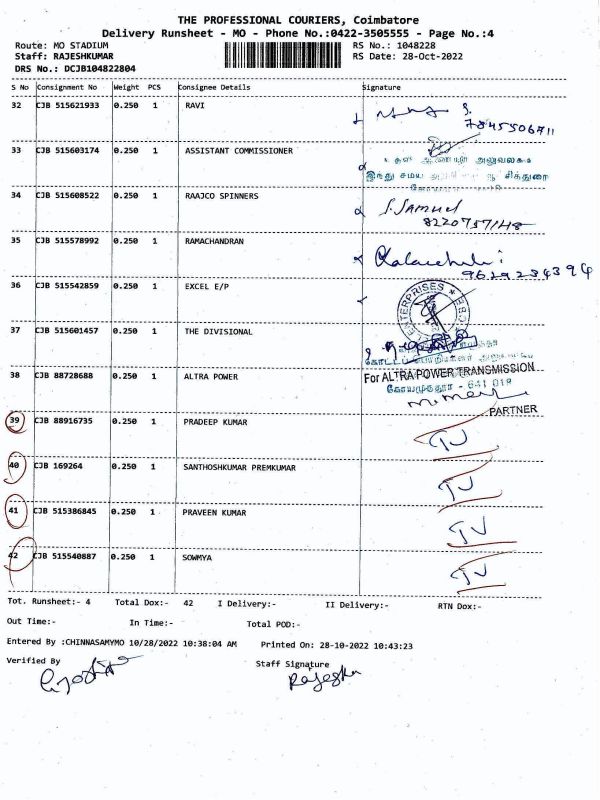 THE PROFESSIONAL COURIERS, Coimbatore
Delivery Runsheet - MO - Phone No.:0422-3505555 - Page No.:4
Route: MO STADIUM RS No.: 1048228
Staff: RAJESHKUMAR RS Date: 28-Oct-2022
DRS No.: DCJB104822804
S No Consignment No Weight PCS Consignee Details Signature
32 CJB 515621933 0.250 1 RAVI
7845506711
33 CJB 515603174 0.250 1 ASSISTANT COMMISSIONER
34 CJB 515608522 0.250 1 RAAJCO SPINNERS S.SAMUEL
8220757148
35 CJB 515578992 0.250 1 RAMACHANDRAN
9629234394
36 CJB 515542859 0.250 1 EXCEL E/P
ENTERPRISES
37 CJB 515601457 0.250 1 THE DIVISIONAL
38 CJB 88728688 0.250 1 ALTRA POWER For ALTRA POWER TRANSMISSION
PARTNER
39 CJB 88916735 0.250 1 PRADEEP KUMAR
40 CJB 169264 0.250 1 SANTHOSHKUMAR PREMKUMAR
41 CJB 515386845 0.250 1 PRAVEEN KUMAR
42 CJB 515540887 0.250 1 SOWMYA
Tot. Runsheet:- 4 Total Dox:- 42 I Delivery:- II Delivery:- RTN Dox:-
Out Time:- In Time:- Total POD:-
Entered By :CHINNASAMYMO 10/28/2022 10:38:04 AM Printed On: 28-10-2022 10:43:23
Verified By Staff Signature